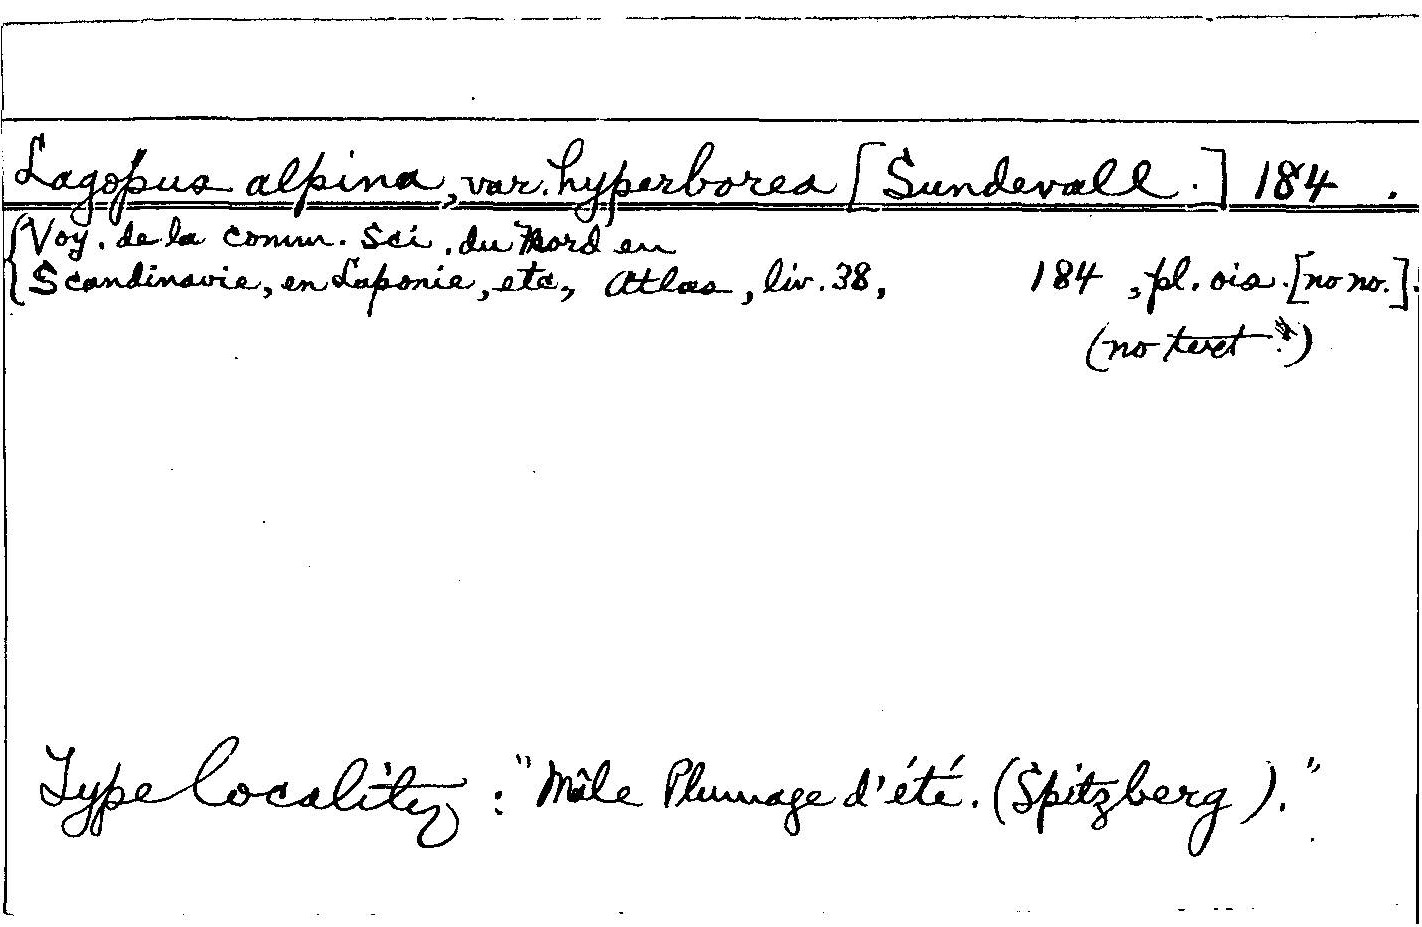 Lagopus alpina, var. hyperborea [Sundevall.] 184 .
Voy. de la comm. Sci. du Nord en
Scandinavie, en Laponie, etc., Atlas, liv. 38, 184 , pl. ois. [no no.].
(no text.)
Type locality: "Mâle Plumage d'été. (Spitzberg)."